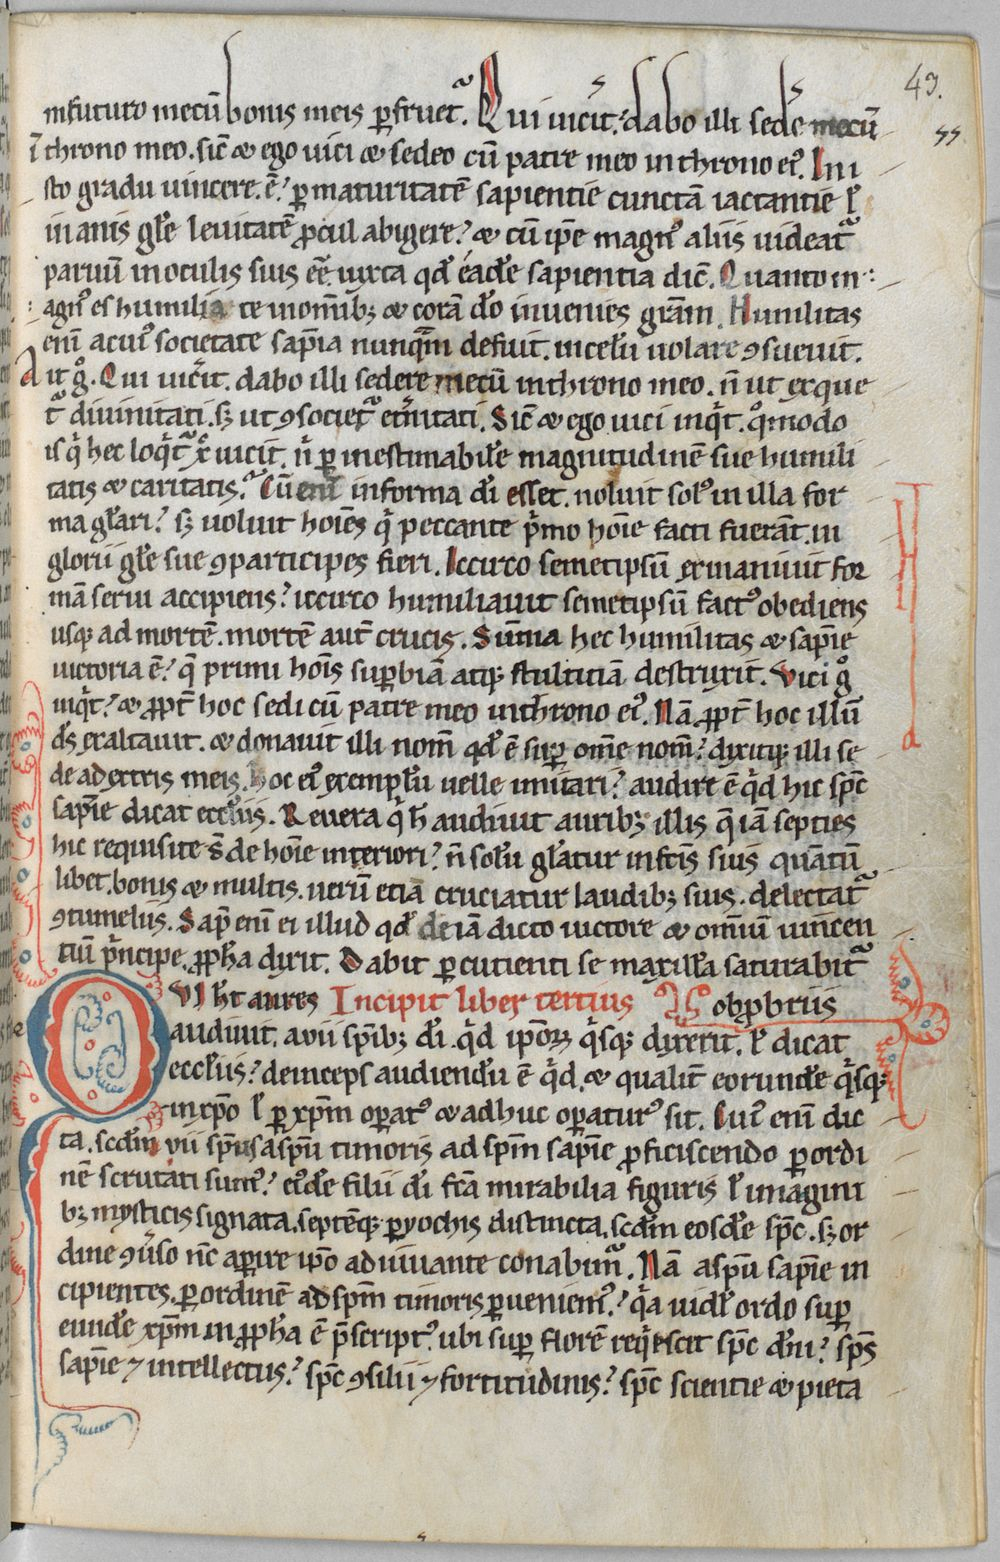 43.
55.
in futuro mecū bonis meis ꝑfruet᷑. Qui vicit. dabo illi sedē mecū
ī throno meo. sic̄ & ego vici & sedeo cū patre meo in throno ei᷒. In i
sto gradu vincere. ē. ꝑ maturitatē sapientie cunctā iactantie ł
inanis gl̄e levitatē ꝓcul abigere. & cū ip̄e magn᷒ aliis videat᷑
parvū in oculis suis eē. iuxta qd̄ eadē sapientia dic̄. Quanto m
agn᷒ es humilia te in om̄ibꝫ & corā dō invenies gr̄am. Humilitas
eni᷒ acui᷒ societate sap̄ia nunqm̄ defuit. in celū volare ꝯsuevit.
Ait gͦ. Qui vicit. dabo illi sedere mecū in throno meo. n̄ ut exque
t᷑ divinitati. sꝫ ut ꝯsociet᷑ et̄nitati. Sic̄ & ego vici inqͥt. qͦmodo
is qͥ hec loqͥt᷑ xp̄c vicit. nͥ ꝑ inestimabilē magnitudinē sue humili
tatis & caritatis. Cū eni᷒ in forma dī esset. noluit sol᷒ in illa for
ma gl̄ari. sꝫ voluit hoīes qͥ peccante pͥmo hoīe facti fuerāt. in
glorii gl̄e sue ꝯparticipes fieri. Iccirco semetipsū exinanivit for
mā servi accipiens. iccirco humiliavit semetipsū fact᷒ obediens
usqꝫ ad mortē. mortē aut̄ crucis. Sūma hec humilitas & sap̄ie
victoria ē. q̄ primi hoīs suꝑbiā atqꝫ stultitiā destruxit. Vici gͦ
inqͥt. & ꝓpt̄ hoc sedi cū patre meo in throno ei᷒. Nā ꝓpt̄ hoc illū
ds̄ exaltavit. & donavit illi nom̄ qd̄ ē suꝑ om̄e nom̄. dixitqꝫ illi se
de a dextris meis. Hoc ei᷒ exemplū velle imitari. audire ē qͥd hic sp̄c
sap̄ie dicat eccl̄iis. Revera qͥ h̄ audivit auribꝫ illis q̄ iā septies
hic requisite s̄ de hoīe interiori. n̄ solū gl̄atur in ftīs suis quātū
libet. bonis & multis. verū etiā cruciatur laudibꝫ suis. delectat᷑
ꝯtumeliis. Sap̄ enī ei illud qd̄ de iā dicto victore & omiū vincen
tiū pͥncipe. ꝓph̄a dixit. Dabit ꝑcutienti se maxillā saturabit᷑
QVI ht̄ aures Incipit liber tertius obꝓbriis
audivit. a vii spībꝫ dī. qͥd ipoꝝ qͥsqꝫ dixerit. ł dicat
eccl̄iis. deinceps audiendū ē qͥd. & qualit̄ eorundē qͥsqꝫ
in xp̄o ł ꝑ xp̄m oꝑat᷒ & adhuc oꝑatur᷒ sit. Cui᷒ enī dic
ta. scd̄m vii sp̄us a sp̄u timoris ad sp̄m sap̄ie ꝓficiscendo ꝑ ordi
nē scrutati sum᷒. ei᷒dē filii dī fc̄a mirabilia figuris ł imagini
bꝫ mysticis signata. septēqꝫ ꝑyochis distincta. scd̄m eosdē sp̄c. sꝫ or
dine ꝯv̄so nc̄ aꝑire ip̄o adiuvante conabim᷑. Nā a sp̄u sap̄ie in
cipientes. ꝑ ordinē ad sp̄m timoris ꝑveniem᷒. qͥa vidꝫ ordo suꝑ
eundē xp̄m in ꝓph̄a ē p̄script᷒. ubi suꝑ florē reqͥescit sp̄c dn̄i. sp̄s
sap̄ie ⁊ intellectus. sp̄c ꝯsilii ⁊ fortitudinis. sp̄c scientie & pieta